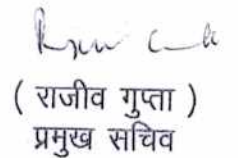 ( राजीव गुप्ता )
प्रमुख सचिव